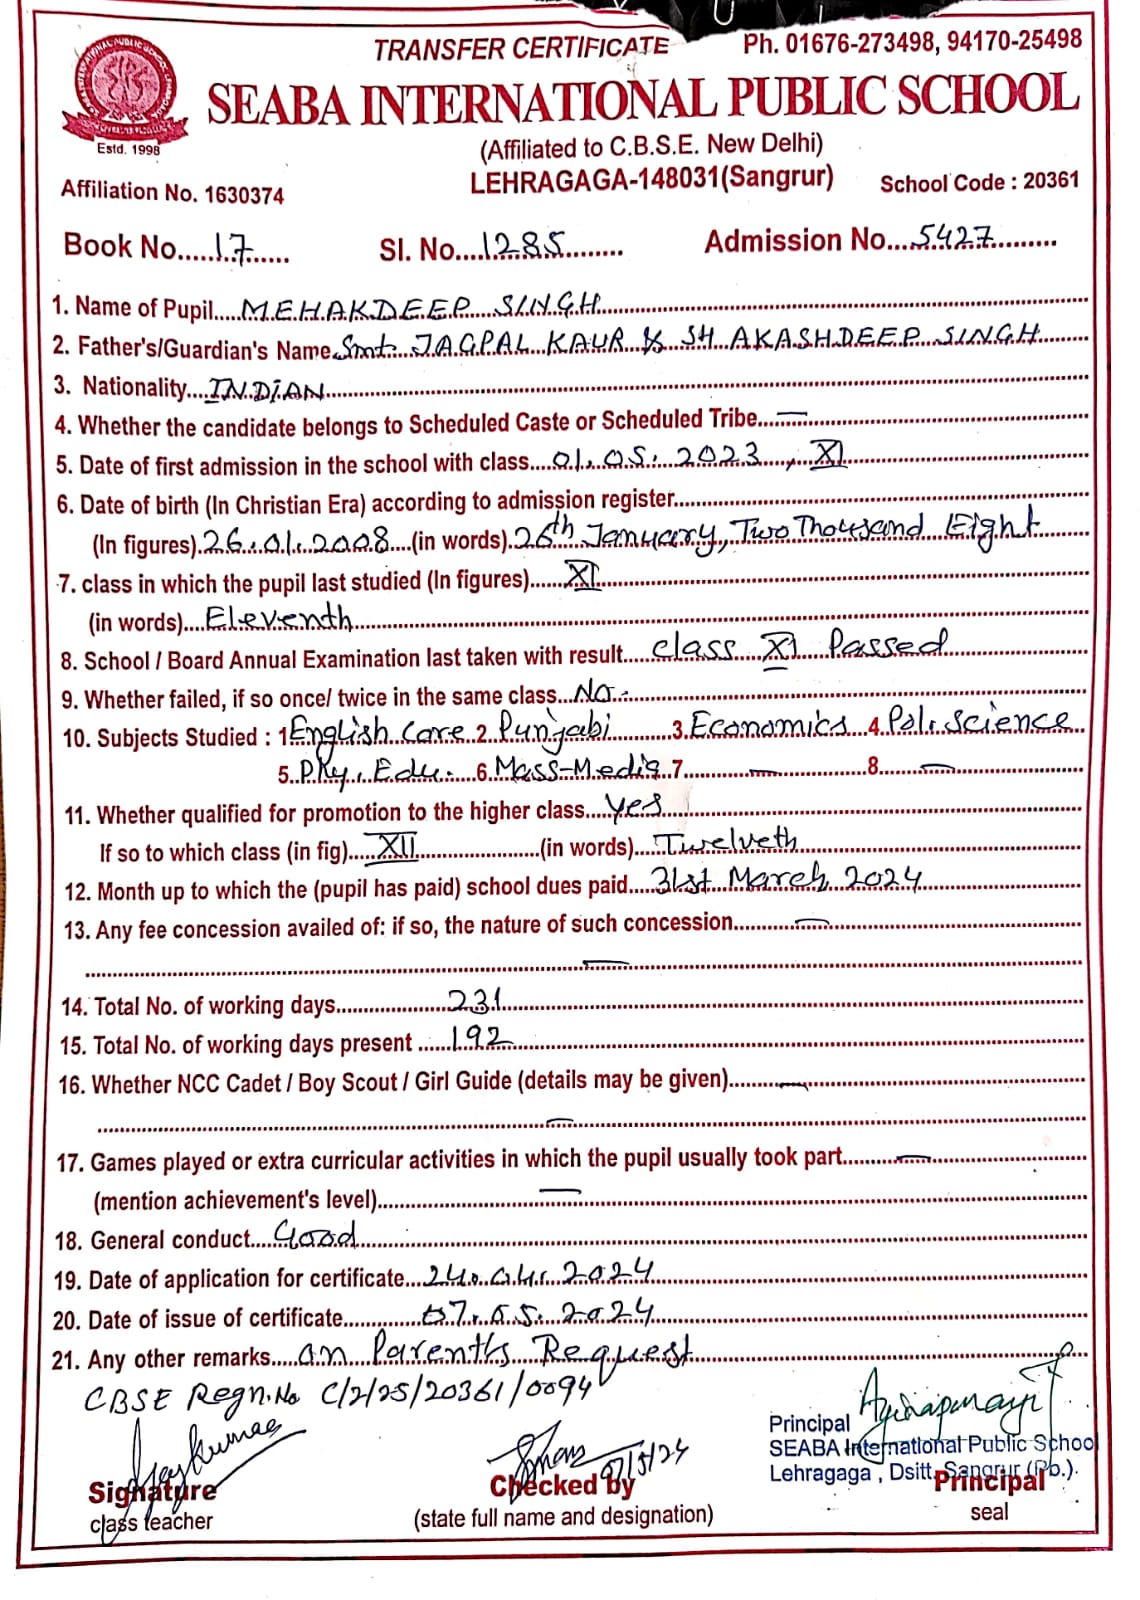 TRANSFER CERTIFICATE Ph. 01676-273498, 94170-25498
SEABA INTERNATIONAL PUBLIC SCHOOL
Estd. 1998
(Affiliated to C.B.S.E. New Delhi)
Affiliation No. 1630374 LEHRAGAGA-148031(Sangrur) School Code : 20361
Book No.....17...... Sl. No....1285......... Admission No...5427..........
1. Name of Pupil.....MEHAKDEEP SINGH
2. Father's/Guardian's Name.Smt. JAGPAL KAUR & SH AKASHDEEP SINGH
3. Nationality...INDIAN
4. Whether the candidate belongs to Scheduled Caste or Scheduled Tribe...—
5. Date of first admission in the school with class....01.05.2023, XI
6. Date of birth (In Christian Era) according to admission register
(In figures).26.01.2008...(in words).26th January, Two Thousand Eight
7. class in which the pupil last studied (In figures)......XI
(in words)...Eleventh
8. School / Board Annual Examination last taken with result.....class XI Passed
9. Whether failed, if so once/ twice in the same class...No.
10. Subjects Studied : 1.English Core 2.Punjabi 3.Economics 4.Pol.Science
5.Phy. Edu. 6.Mass-Media 7.— 8.—
11. Whether qualified for promotion to the higher class....Yes
If so to which class (in fig)....XII (in words)...Twelveth
12. Month up to which the (pupil has paid) school dues paid....31st March 2024
13. Any fee concession availed of: if so, the nature of such concession.....—
—
14. Total No. of working days.....231
15. Total No. of working days present ......192
16. Whether NCC Cadet / Boy Scout / Girl Guide (details may be given).....—
—
17. Games played or extra curricular activities in which the pupil usually took part.....—
(mention achievement's level).....—
18. General conduct.....Good
19. Date of application for certificate...24.04.2024
20. Date of issue of certificate.....07.05.2024
21. Any other remarks....on Parents Request
CBSE Regn.No C/2/25/20361/0094
07/5/24
Principal
SEABA International Public School
Lehragaga , Dsitt. Sangrur (Pb.).
Signature Checked by Principal
class teacher (state full name and designation) seal